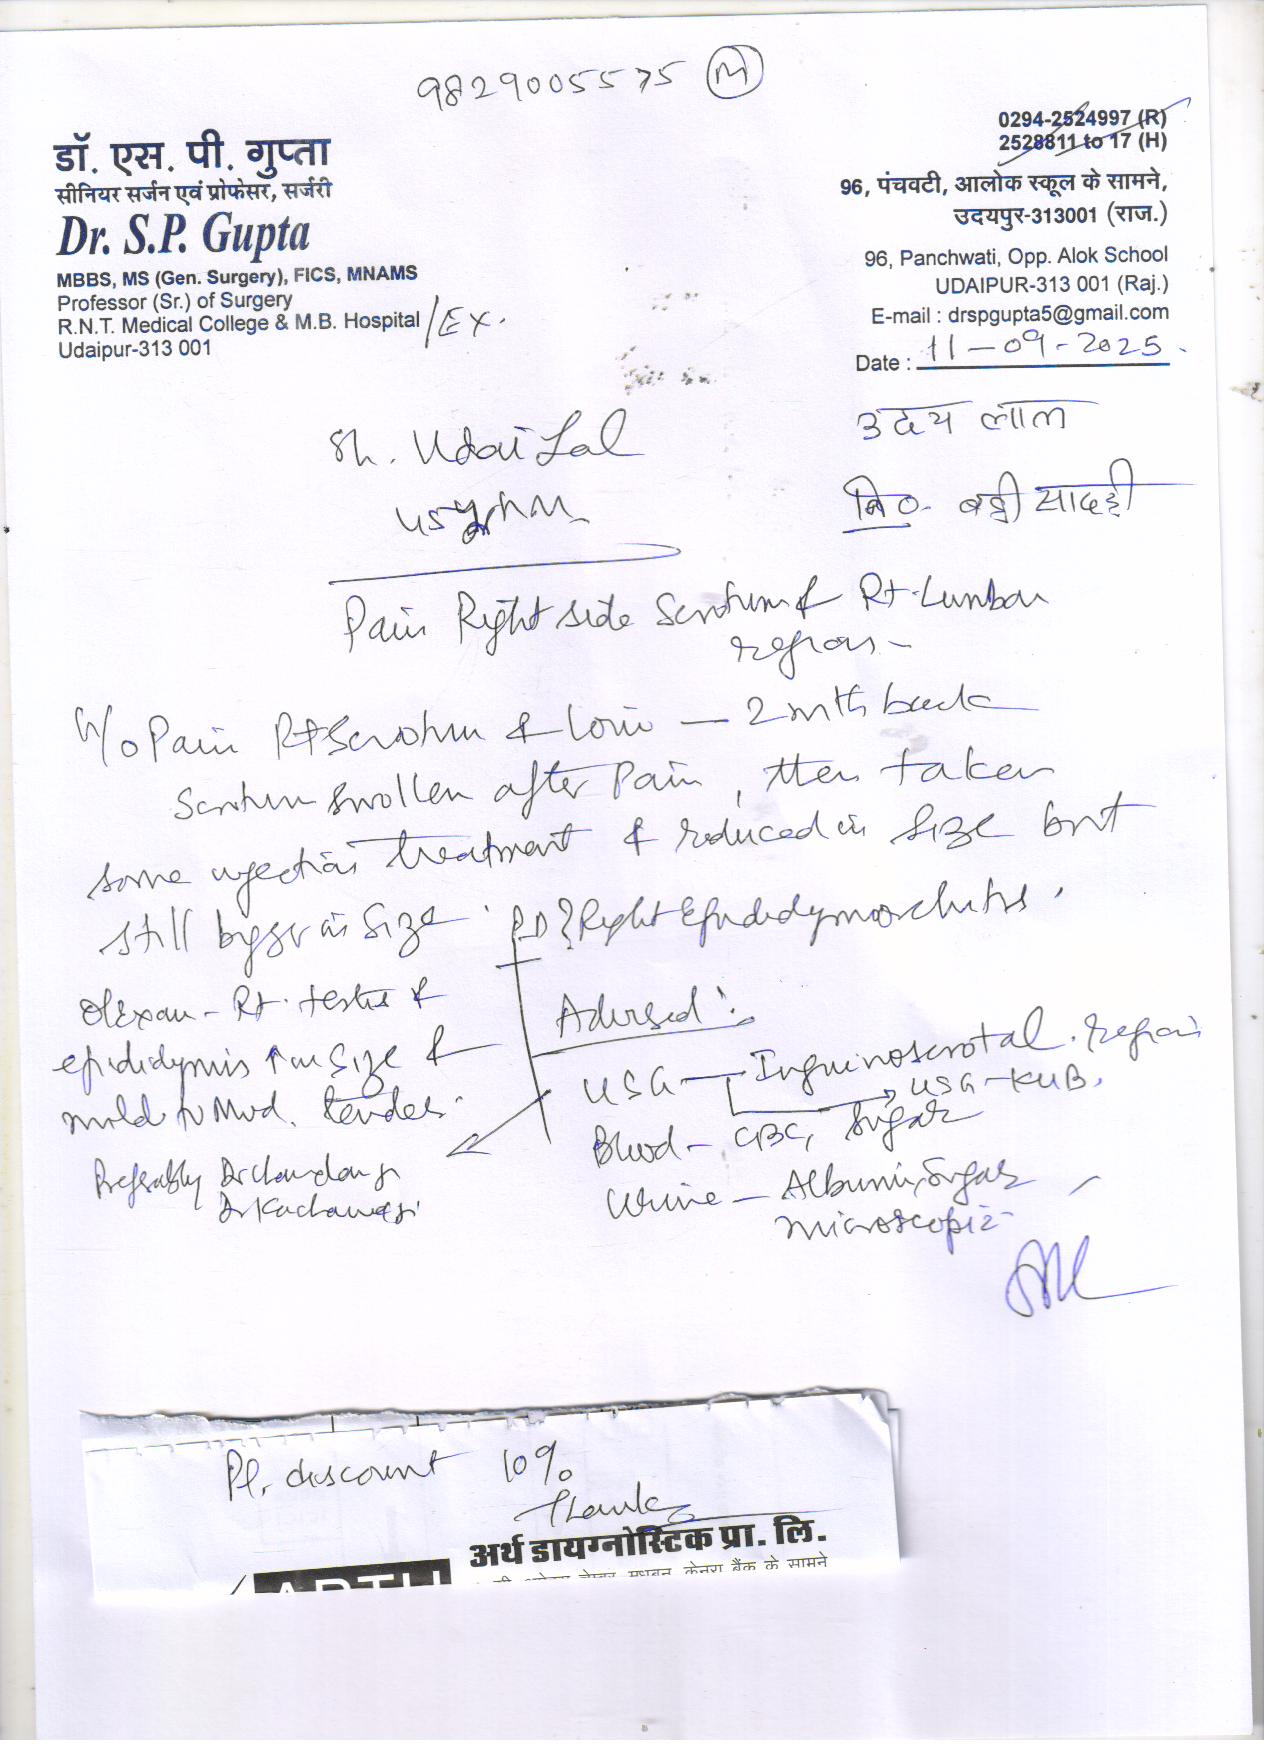 9829005575 (M)
डॉ. एस. पी. गुप्ता
सीनियर सर्जन एवं प्रोफेसर, सर्जरी
Dr. S.P. Gupta
MBBS, MS (Gen. Surgery), FICS, MNAMS
Professor (Sr.) of Surgery
R.N.T. Medical College & M.B. Hospital /Ex.
Udaipur-313 001
0294-2524997 (R)
2528811 to 17 (H)
96, पंचवटी, आलोक स्कूल के सामने,
उदयपुर-313001 (राज.)
96, Panchwati, Opp. Alok School
UDAIPUR-313 001 (Raj.)
E-mail : drspgupta5@gmail.com
Date : 11-09-2025.
Sh. Udai Lal
उदय लाल
नि०. बड़ी सादड़ी
Pain Right side Scrotum & Rt. Lumbar
region -
H/o Pain Rt Scrotum & loin — 2 mth back
Scrotum swollen after Pain, then taken
some injection treatment & reduced in size but
still bigger in size. PD ? Right Epididymoorchitis.
O/Exam - Rt. testis &
epididymis ↑ in size &
mild to Mod. tender.
Preferably Dr Chandan ji
Dr Kachawa ji
Advised :-
USG — Inguinoscrotal region
USG - KUB.
Blood - CBC, Sugar
Urine - Albumin, Sugar
microscopic
Pl. discount 10%
Thanks
अर्थ डायग्नोस्टिक प्रा. लि.
मधुबन, केनरा बैंक के सामने